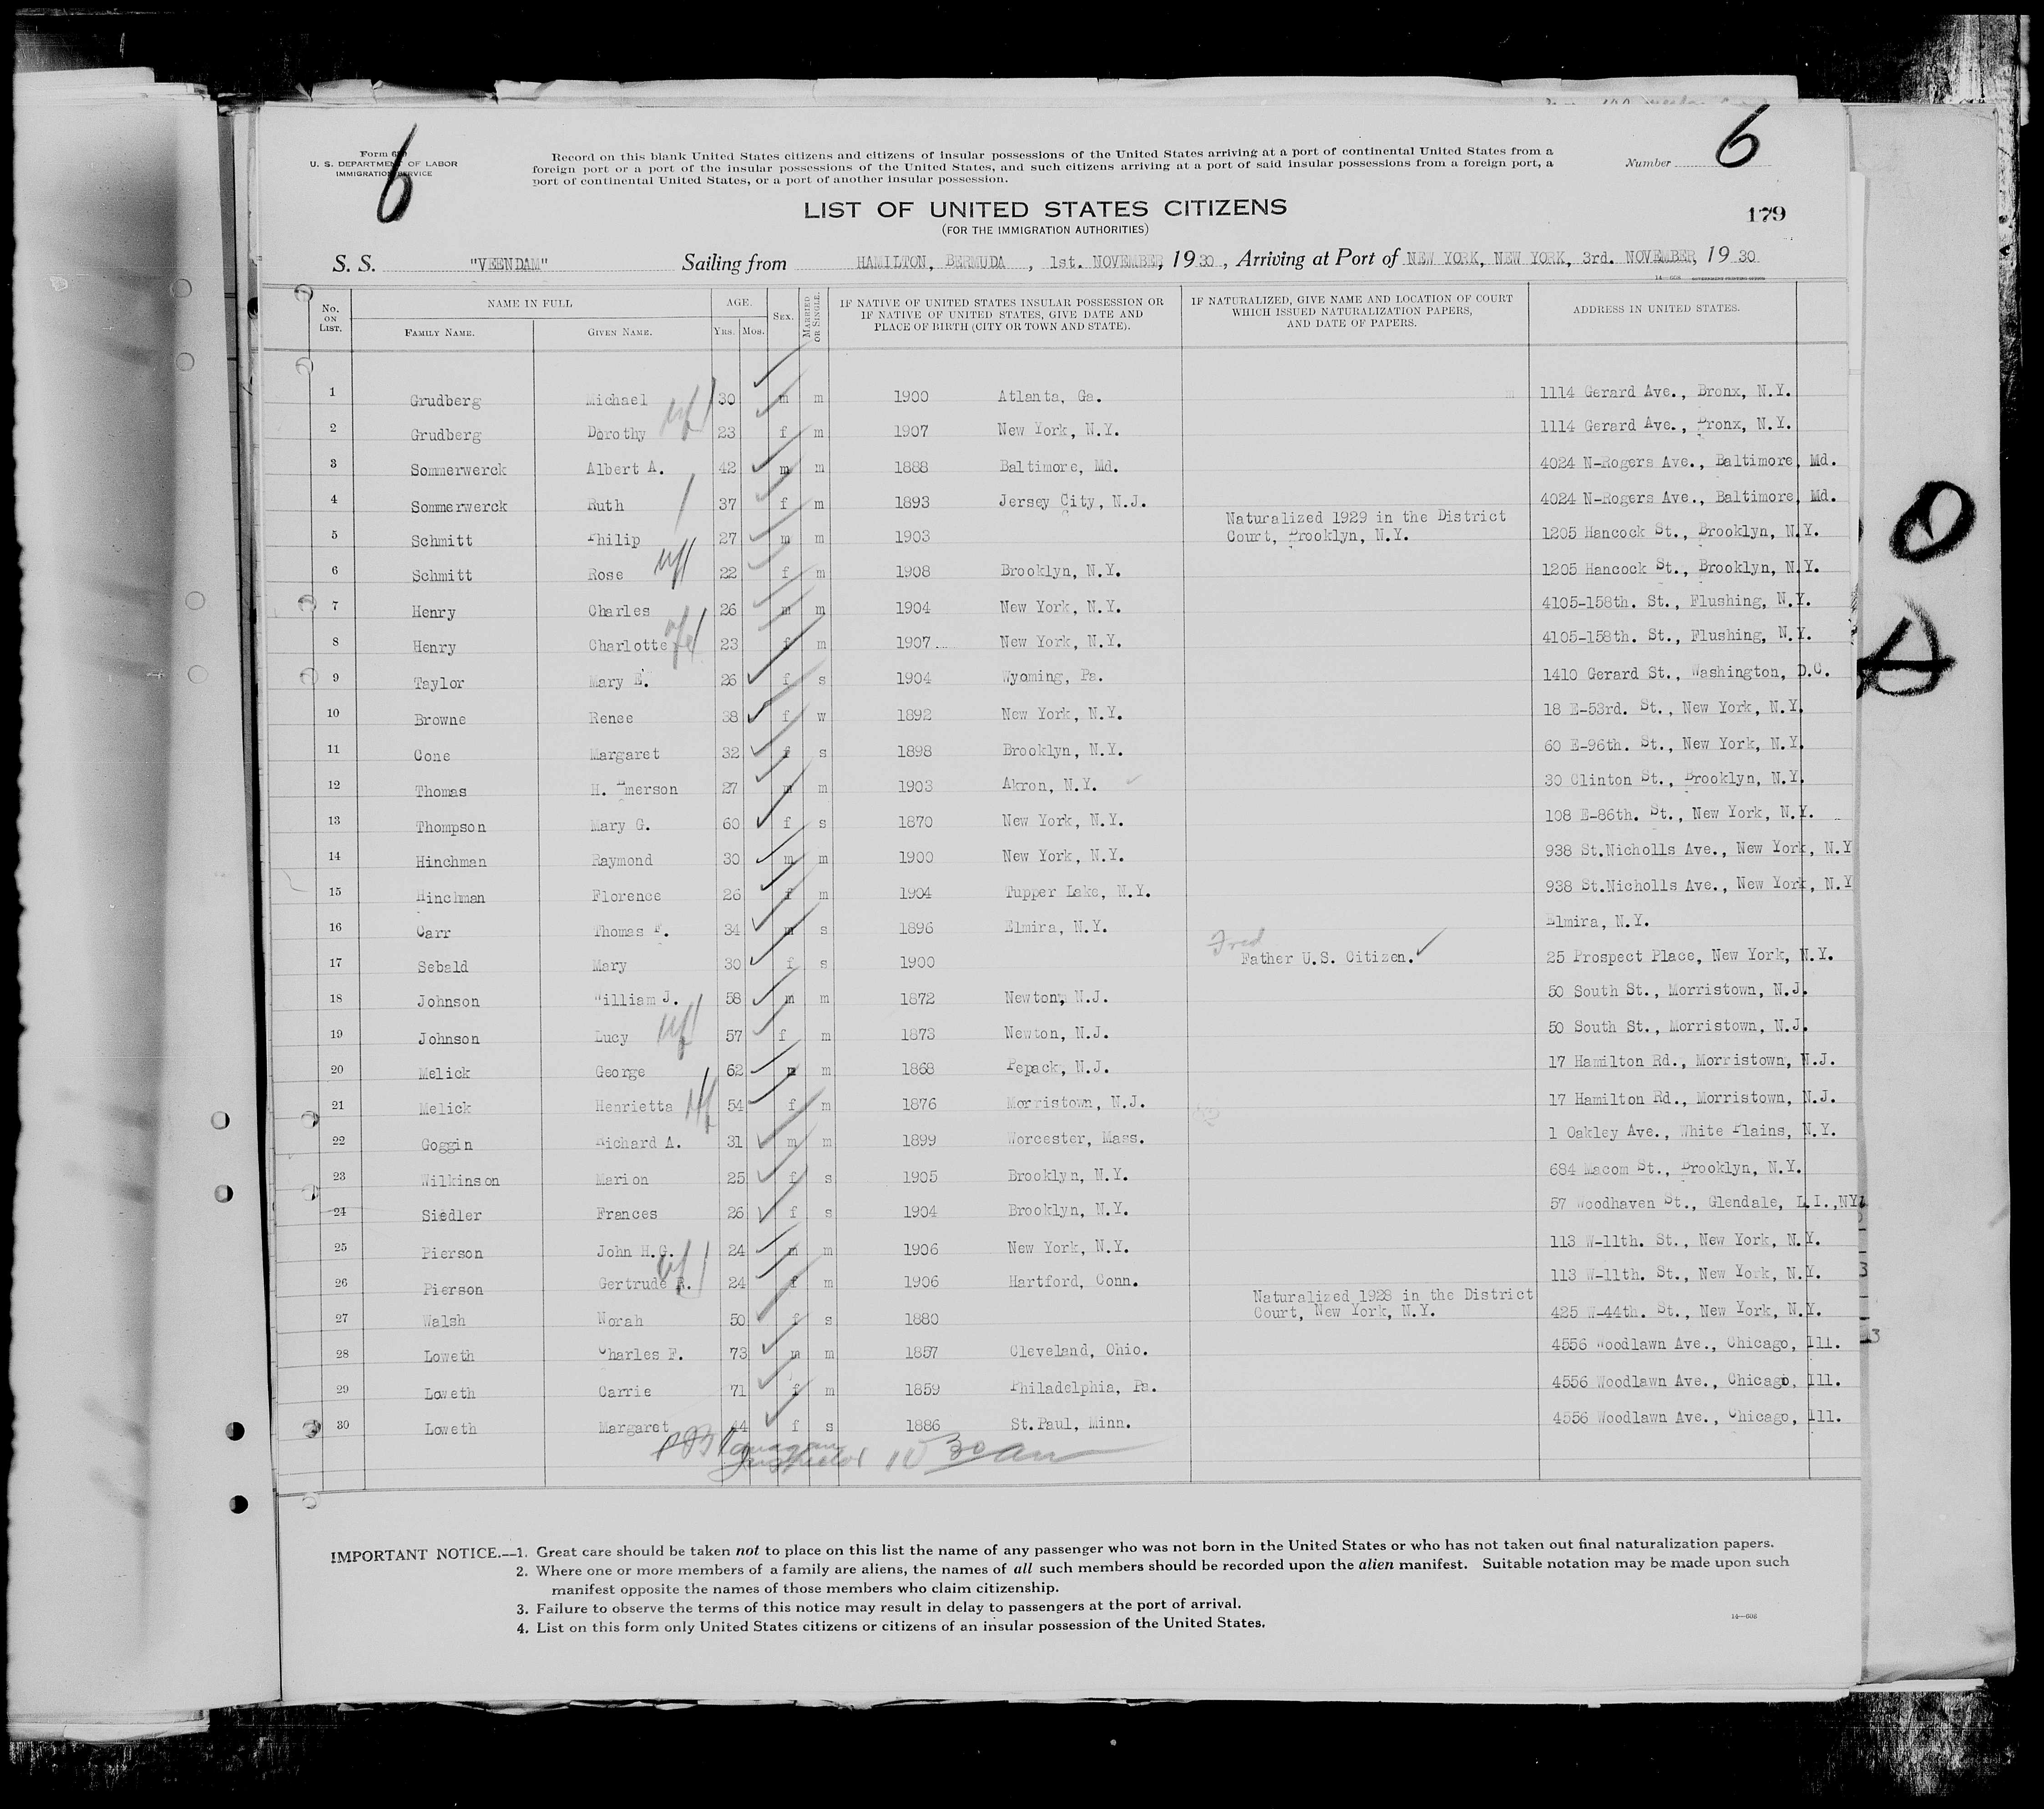 6
6
Form 630
U. S. DEPARTMENT OF LABOR
IMMIGRATION SERVICE
Record on this blank United States citizens and citizens of insular possessions of the United States arriving at a port of continental United States from a
foreign port or a port of the insular possessions of the United States, and such citizens arriving at a port of said insular possessions from a foreign port, a
port of continental United States, or a port of another insular possession.
Number
LIST OF UNITED STATES CITIZENS
179
(FOR THE IMMIGRATION AUTHORITIES)
S. S. "VEENDAM" Sailing from HAMILTON, BERMUDA, 1st. NOVEMBER, 1930, Arriving at Port of NEW YORK, NEW YORK, 3rd. NOVEMBER, 1930
No. ON LIST. NAME IN FULL FAMILY NAME. GIVEN NAME. AGE. YRS. MOS. SEX. MARRIED OR SINGLE. IF NATIVE OF UNITED STATES INSULAR POSSESSION OR IF NATIVE OF UNITED STATES, GIVE DATE AND PLACE OF BIRTH (CITY OR TOWN AND STATE). IF NATURALIZED, GIVE NAME AND LOCATION OF COURT WHICH ISSUED NATURALIZATION PAPERS, AND DATE OF PAPERS. ADDRESS IN UNITED STATES.
1 Grudberg Michael 30 m m 1900 Atlanta, Ga. 1114 Gerard Ave., Bronx, N.Y.
2 Grudberg Dorothy 23 f m 1907 New York, N.Y. 1114 Gerard Ave., Bronx, N.Y.
3 Sommerwerck Albert A. 42 m m 1888 Baltimore, Md. 4024 N-Rogers Ave., Baltimore, Md.
4 Sommerwerck Ruth 37 f m 1893 Jersey City, N.J. 4024 N-Rogers Ave., Baltimore, Md.
5 Schmitt Philip 27 m m 1903 Naturalized 1929 in the District Court, Brooklyn, N.Y. 1205 Hancock St., Brooklyn, N.Y.
6 Schmitt Rose 22 f m 1908 Brooklyn, N.Y. 1205 Hancock St., Brooklyn, N.Y.
7 Henry Charles 26 m m 1904 New York, N.Y. 4105-158th. St., Flushing, N.Y.
8 Henry Charlotte 23 f m 1907 New York, N.Y. 4105-158th. St., Flushing, N.Y.
9 Taylor Mary E. 26 f s 1904 Wyoming, Pa. 1410 Gerard St., Washington, D.C.
10 Browne Renee 38 f w 1892 New York, N.Y. 18 E-53rd. St., New York, N.Y.
11 Cone Margaret 32 f s 1898 Brooklyn, N.Y. 60 E-96th. St., New York, N.Y.
12 Thomas H. Emerson 27 m m 1903 Akron, N.Y. 30 Clinton St., Brooklyn, N.Y.
13 Thompson Mary G. 60 f s 1870 New York, N.Y. 108 E-86th. St., New York, N.Y.
14 Hinchman Raymond 30 m m 1900 New York, N.Y. 938 St.Nicholls Ave., New York, N.Y
15 Hinchman Florence 26 f m 1904 Tupper Lake, N.Y. 938 St.Nicholls Ave., New York, N.Y
16 Carr Thomas F. 34 m s 1896 Elmira, N.Y. Elmira, N.Y.
17 Sebald Mary 30 f s 1900 Fred Father U.S. Citizen. 25 Prospect Place, New York, N.Y.
18 Johnson William J. 58 m m 1872 Newton, N.J. 50 South St., Morristown, N.J.
19 Johnson Lucy 57 f m 1873 Newton, N.J. 50 South St., Morristown, N.J.
20 Melick George 62 m m 1868 Pepack, N.J. 17 Hamilton Rd., Morristown, N.J.
21 Melick Henrietta 54 f m 1876 Morristown, N.J. 17 Hamilton Rd., Morristown, N.J.
22 Goggin Richard A. 31 m m 1899 Worcester, Mass. 1 Oakley Ave., White Plains, N.Y.
23 Wilkinson Marion 25 f s 1905 Brooklyn, N.Y. 684 Macom St., Brooklyn, N.Y.
24 Siedler Frances 26 f s 1904 Brooklyn, N.Y. 57 Woodhaven St., Glendale, L.I.,NY.
25 Pierson John H.G. 24 m m 1906 New York, N.Y. 113 W-11th. St., New York, N.Y.
26 Pierson Gertrude R. 24 f m 1906 Hartford, Conn. 113 W-11th. St., New York, N.Y.
27 Walsh Norah 50 f s 1880 Naturalized 1928 in the District Court, New York, N.Y. 425 W-44th. St., New York, N.Y.
28 Loweth Charles F. 73 m m 1857 Cleveland, Ohio. 4556 Woodlawn Ave., Chicago, Ill.
29 Loweth Carrie 71 f m 1859 Philadelphia, Pa. 4556 Woodlawn Ave., Chicago, Ill.
30 Loweth Margaret 44 f s 1886 St.Paul, Minn. 4556 Woodlawn Ave., Chicago, Ill.
Inspector 10 30 am
IMPORTANT NOTICE.—1. Great care should be taken not to place on this list the name of any passenger who was not born in the United States or who has not taken out final naturalization papers.
2. Where one or more members of a family are aliens, the names of all such members should be recorded upon the alien manifest. Suitable notation may be made upon such
manifest opposite the names of those members who claim citizenship.
3. Failure to observe the terms of this notice may result in delay to passengers at the port of arrival.
4. List on this form only United States citizens or citizens of an insular possession of the United States.
14—608